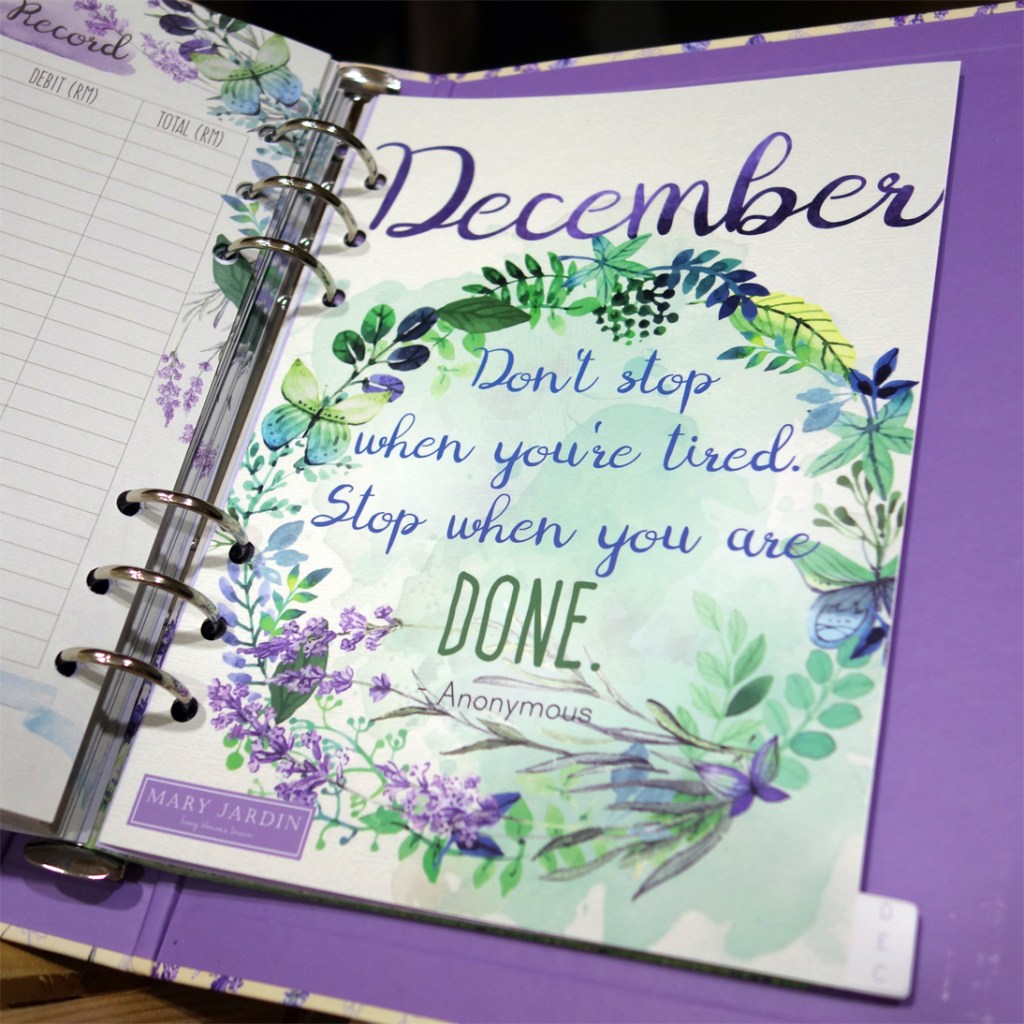 Record
DEBIT (RM)
TOTAL (RM)
December
Don't stop
when you're tired.
Stop when you are
DONE.
- Anonymous
MARY JARDIN
DEC